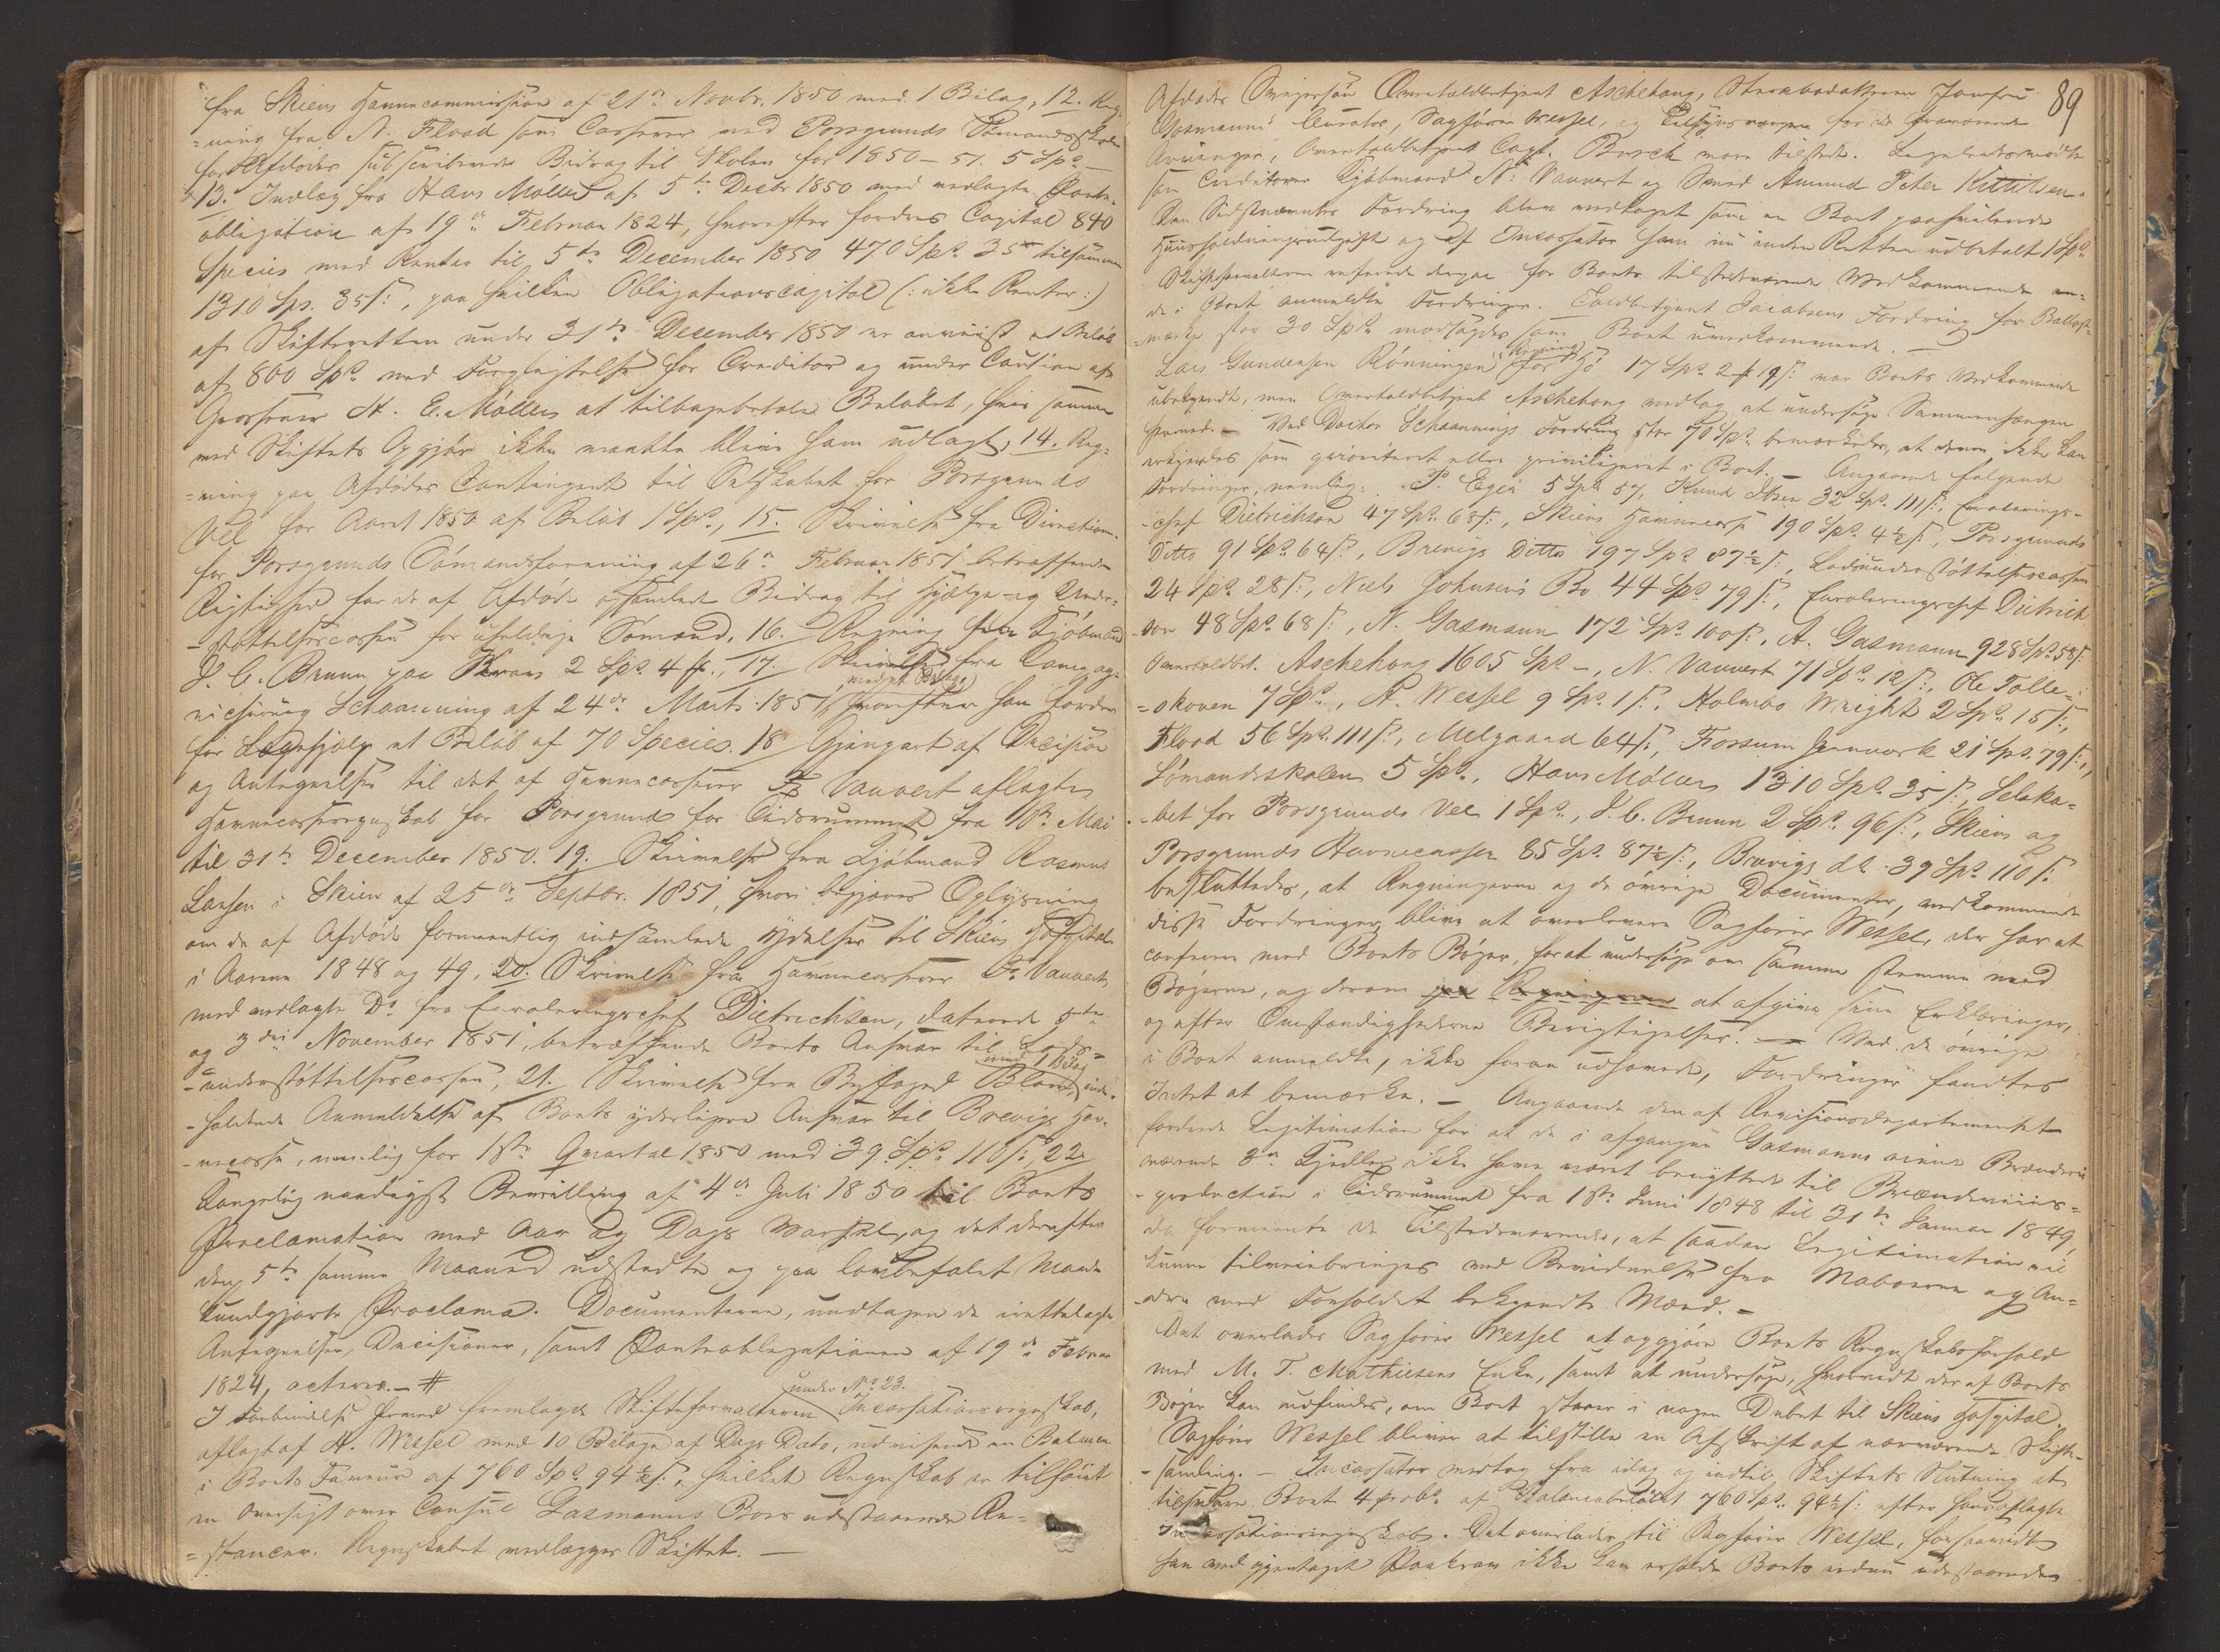 fra Skiens Havnecommission af 21de Novbr. 1850 med 1 Bilag, 12. Reg-
=ning fra N. Flood som Casserer ved Porsgrunds Sømandsskole
for Afdødes subscriberede Bidrag til Skolen for 1850–51. 5 Spd. –
13. Indlæg fra Hans Møller af 5te Decbr 1850 med vedlagte Pante-
obligation af 19de Februar 1824, hvorefter fordres Capital 840
Species med Renter til 5te December 1850 470 Spd. 35 s tilsammen
1310 Sps. 35 s:, paa hvilken Obligationscapital (: ikke Renter :)
af Skifteretten under 31te December 1850 er anviist et Beløb
af 800 Spd. med Forpligtelse for Creditor og under Caution af
Grosserer H. E. Møller at tilbagebetale Beløbet, hvis samme
ved Skiftets Opgjør ikke maatte blive ham udlagt, 14. Reg-
=ning paa Afdødes Contingent til Selskabet for Porsgrunds
Vel for Aaret 1850 af Beløb 1 Spd., 15. Skrivelse fra Directionen
for Porsgrunds Sømandsforening af 26de Februar 1851 betræffende
Rigtighed for de af Afdøde opsamlede Bidrag til Hjælpe- og Under-
=støttelsescassen for uheldige Sømænd, 16. Regning fra Kjøbmand
J. C. Bruun paa Krav 2 Spd. 4 ort, 17. Skrivelse fra Compag-
nichirurg Schaanning af 24de Marts 1851, med et Bilag hvorefter han fordrer
for Lægehjælp et Beløb af 70 Species. 18 Gjenpart af Decision
og Antegnelser til det af Havnecasserer Vauvert aflagte
Havnecasseregnskab for Porsgrund for Tidsrummet fra 10de Mai
til 31te December 1850. 19. Skrivelse fra Kjøbmand Rasmus
Larsen i Skien af 25de Septbr. 1851, hvori begjæres Oplysning
om de af Afdøde formeentlig indsamlede Ydelser til Skiens Hospital
i Aarene 1848 og 49, 20. Skrivelse fra Havnecasserer Vauvert
med vedlagte Do fra Enrolleringschef Dietrichson, daterede 5te
og 3die November 1851, betræffende Boets Ansvar til Lods-
=understøttelsescassen, 21. Skrivelse fra Byfoged Blom med 1 Bilag inde-
=holdende Anmeldelse af Boets yderligere Ansvar til Brevigs Hav-
=necasse, nemlig for 1ste Qvartal 1850 med 39 Spd. 110 s:, 22
Kongelig naadigst Bevilling af 4de Juli 1850 til Boets
Proclamation med Aar og Dags Varsel, og det derefter
den 5te samme Maaned udstedte og paa lovbefalet Maade
kundgjorte Proclama. Documenterne, undtagen de irettelagte
Antegnelser, Decisioner, samt Panteobligationen af 19de Februar
1824, acteres. – #
I Forbindelse hermed fremlagde Skifteforvalteren under No 23. Incassationsregnskab,
aflagt af H. Wessel med 10 Bilage af Dags Dato, udvisende en Balance
i Boets Faveur af 760 Spd. 94½ s:, hvilket Regnskab er tilføiet
en Oversigt over Consul Gasmanns Boes udestaaende Re-
=stancer. Regnskabet vedlægges Skiftet. –
89
Afdødes Svigersøn Overtoldbetjent Aschehoug, Stervbodatteren Jomfru
Gasmanns Curator, Sagfører Wessel, og Tilsynsværgen for de fraværende
Arvinger, Overtoldbetjent Capt. Borch vare tilstede. Ligeledes mødte
som Creditorer Kjøbmand N. Vauvert og Smed Amund Peter Kittilsen.
Den Sidstnævntes Fordring blev vedtaget som en Boet paahvilende
Huusholdningsudgift og af Incassator ham nu inden Retten udbetalt 1 Spd.
Skifteforvalteren refererede dernæst for Boets tilstedeværende Vedkommende an-
de i Boet anmeldte Fordringer. Toldbetjent Jacobsens Fordring for Ballast-
=mærke stor 30 Spd. modsagdes som Boet uvedkommende. –
Lars Gundersen Rønningen's Regning for Hø 17 Spd. 2 ort 19 s: var Boets Vedkommende
ubekjendt, men Overtoldbetjent Aschehoug vedtog at undersøge Sammenhængen
hermed. – Ved Doctor Schaannings Fordring stor 70 Spd. bemærkedes, at denne ikke kan
erkjendes som prioriteret eller privilegeret i Boet. – Angaaende følgende
Fordringer, nemlig: P. Eger 5 Spd 57, Knud Ibsen 32 Spd. 111 s:, Enrollerings-
=chef Dietrichson 47 Spd. 68 s:, Skiens Havnecasse 190 Spd. 4½ s:, Porsgrunds
Ditto 91 Spd. 64 s:, Brevigs Ditto 197 Spd. 87½ s:, Lodsunderstøttelsescassen
24 Spd. 28 s:, Niels Johnsens Bo 44 Spd. 79 s:, Enrolleringschef Dietrich-
=son 48 Spd. 68 s:, N. Gasmann 172 Spd. 100 s:, A. Gasmann 928 Spd. 58 s:
Overtoldbtj. Aschehoug 1605 Spd. –, N. Vauvert 71 Spd. 12 s:, Ole Tolle-
=skoven 7 Spd., H. Wessel 9 Spd. 1 s:, Holmbo Wright 2 Spd. 15 s:,
Flood 56 Spd. 111 s:, Melgaard 64 s:, Fossum Jernværk 21 Spd. 79 s:,
Sømandsskolen 5 Spd., Hans Møller 1310 Spd. 35 s:, Selska-
=bet for Porsgrunds Vel 1 Spd., J. C. Bruun 2 Spd. 96 s:, Skiens og
Porsgrunds Havnecasser 85 Spd. 87½ s:, Brevigs do. 39 Spd. 110 s:
besluttedes, at Regningerne og de øvrige Documenter, vedkommende
disse Fordringer, blive at overlevere Sagfører Wessel, der har at
conferere med Boets Bøger, for at undersøge om samme stemme med
Bøgerne, og derom paa Regningerne at afgive sine Erklæringer,
og efter Omstændighederne Berigtigelser. – Ved de øvrige
i Boet anmeldte, ikke foran udhævede, Fordringer fandtes
Intet at bemærke. – Angaaende den af Revisionsdepartementet
fordrede Legitimation for at de i afgangne Gasmanns eiende Brænderi
værende 2de Kjedler ikke have været benyttede til Brændeviins-
=production i Tidsrummet fra 1ste Juni 1848 til 31te Januar 1849,
da formeente de Tilstedeværende, at saadan Legitimation vil
kunne tilveiebringes ved Bevidnelse fra Naboerne og An-
=dre med Forholdet bekjendte Mænd. –
Det overlades Sagfører Wessel at opgjøre Boets Regnskabsforhold
med M. T. Mathiesens Enke, samt at undersøge, hvorvidt der af Boets
Bøger kan udfindes, om Boet staaer i nogen Debet til Skiens Hospital.
Sagfører Wessel bliver at tilstille en Afskrift af nærværende Skifte-
=samling. – Incassator vedtog fra idag og indtil Skiftets Slutning at
tilsvare Boet 4 proCt. af Balancebeløbet 760 Spd. 94½ s: efter hans aflagte
Incassationsregnskab. Det overlades til Sagfører Wessel, forsaavidt
han ved gjentaget Paakrav ikke kan erholde Boets endnu udestaaende